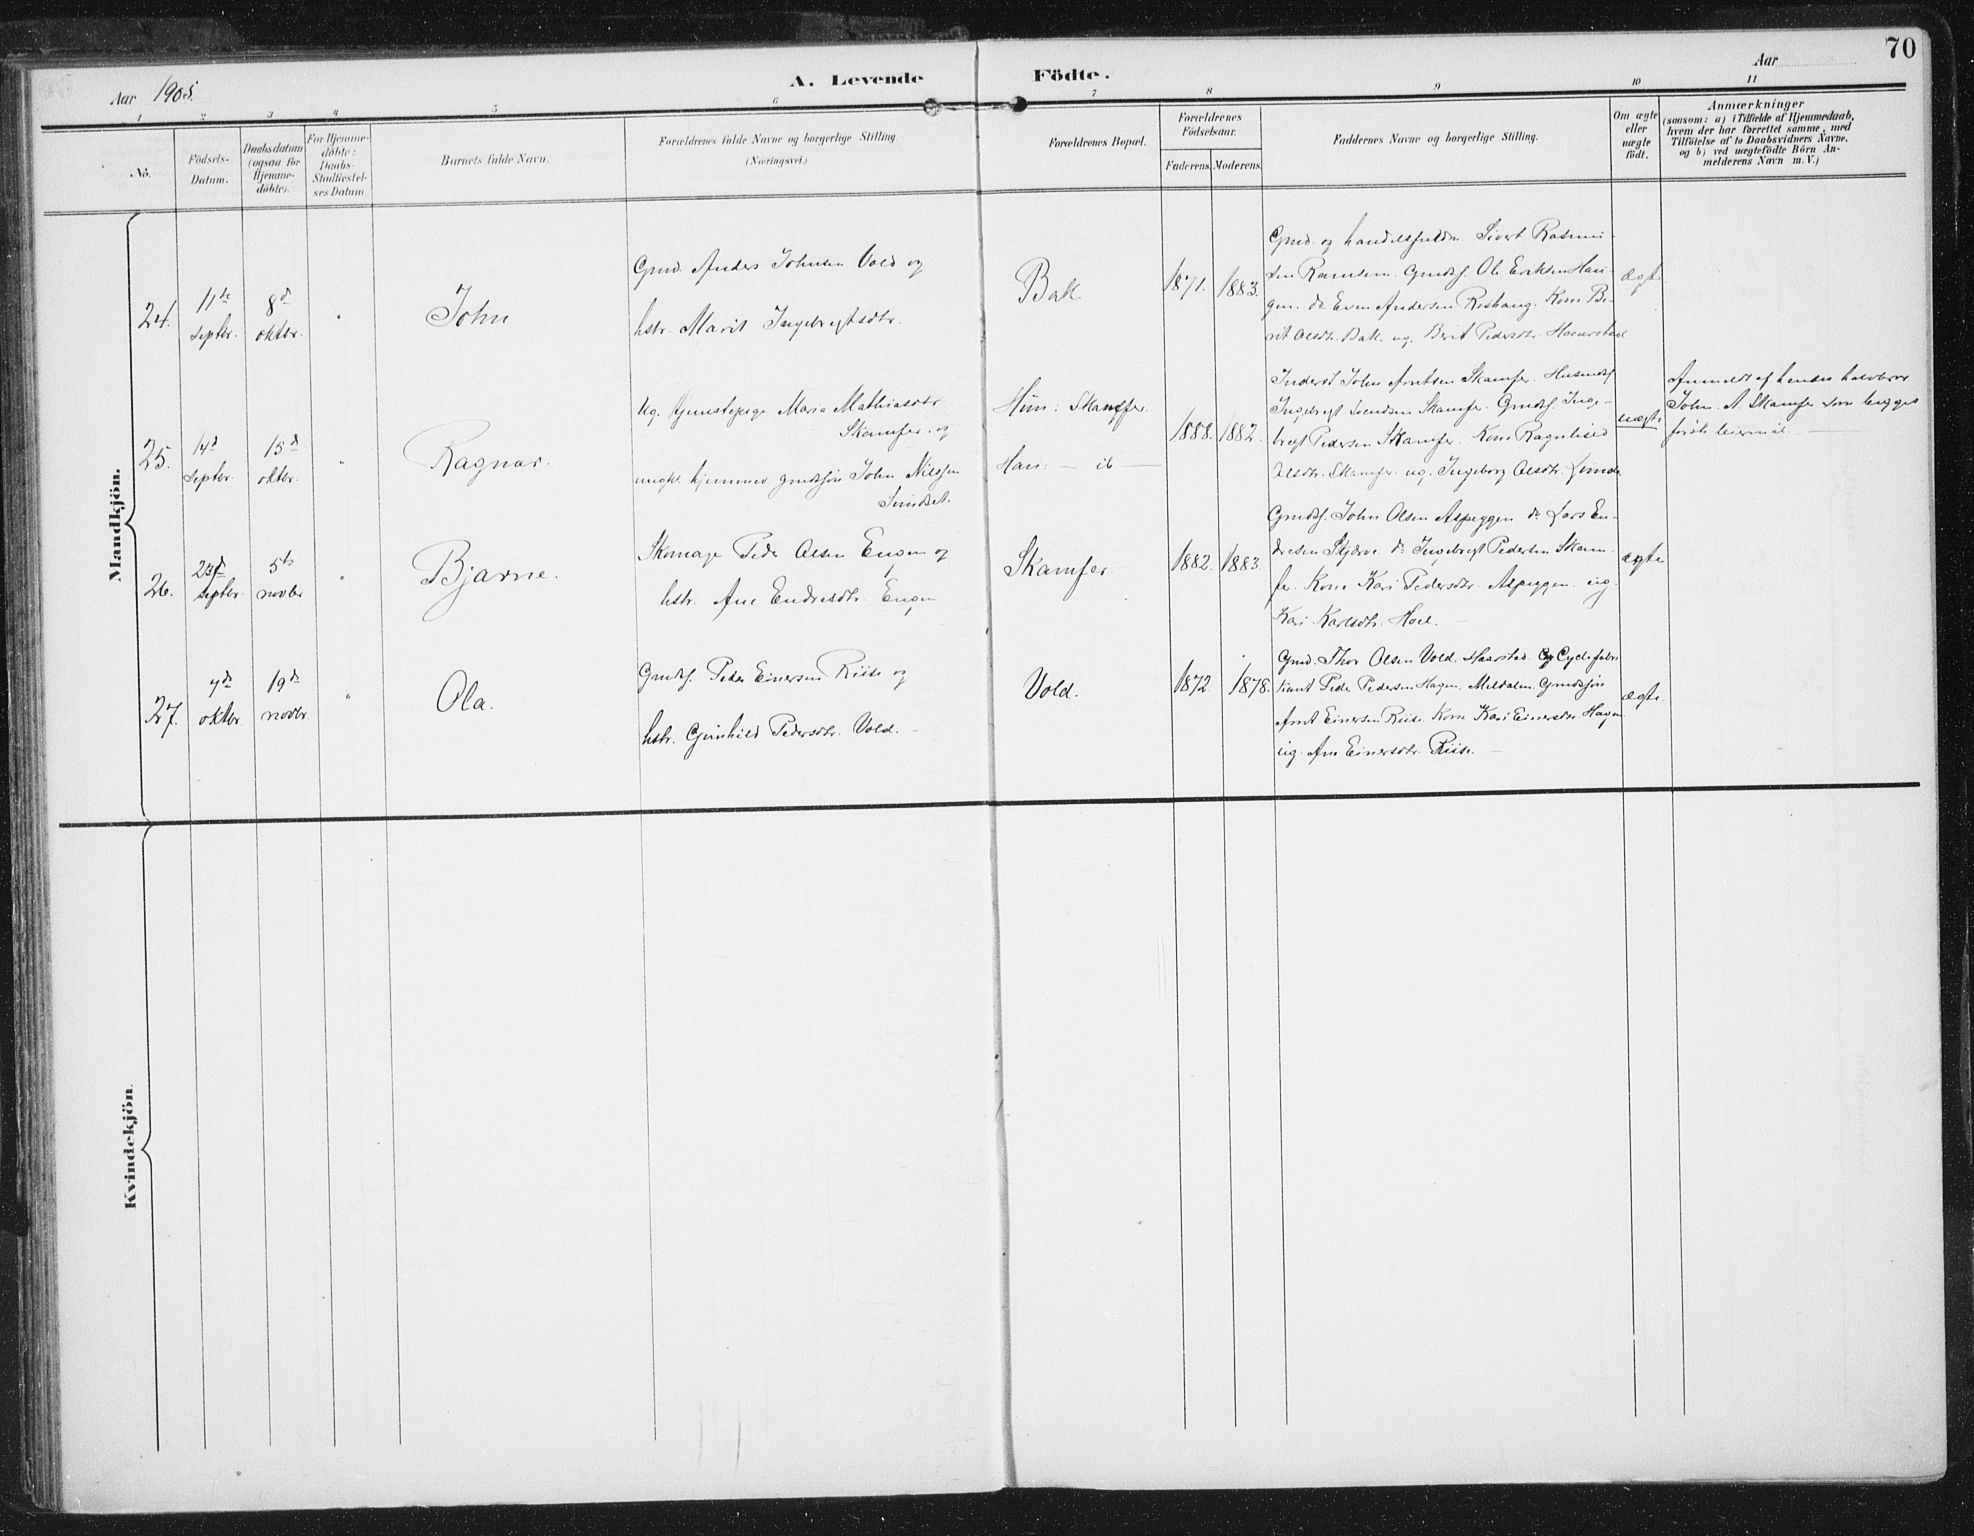 70
Aar 1905.
A. Levende Födte.
Aar
1 2 3 4 5 6 7 8 9 10 11
No.
Födsels-
Datum.
Daabsdatum
(ogsaa for
Hjemme-
döbte).
For Hjemme-
döbte:
Daabs-
Stadfæstel-
ses Datum
Barnets fulde Navn.
Forældrenes fulde Navne og borgerlige Stilling
(Næringsvei.)
Forældrenes Bopæl.
Forældrenes
Födselsaar.
Faderens. Moderens.
Faddernes Navne og borgerlige Stilling.
Om ægte
eller
uægte
födt.
Anmærkninger
(saasom: a) i Tilfælde af Hjemmedaab,
hvem der har forrettet samme, med
Tilföielse af to Daabsvidners Navne,
og b) ved uægtefödte Börn An-
melderens Navn m. V.)
Mandkjön.
24.
11te
septbr.
8d
oktbr.
"
John
Gmd. Anders Johnsen Vold og
hstr. Marit Ingebrigtsdtr.
Bak
1871. 1883.
Gmd. og handelsfuldm. Sivert Rasmus-
sen Ramsem. Gmdsf. Ole Eriksen Hau-
gen. do Even Andersen Reshaug. Kone Be-
rit Olsdtr. Bak. ug. Berit Pedersdtr. Haarstad
ægte
25.
14d
septbr.
15d
oktbr.
"
Ragnar.
Ug. tjenestepige Maria Mathiasdtr
Skamfer. og
ungk. hjemmev gmdssøn John Nilssen
Sundset.
Hun: Skamfer.
Han: — ib —
1888. 1882.
Inderst John Arntsen Skamfer. Husmdsf.
Ingebrigt Svendsen Skamfer. Gmdsf. Inge-
brigt Pedersen Skamfer. Kone Ragnhild
Olsdtr. Skamfer. ug. Ingeborg Olsdtr. Lunde
uægte
Anmeldt af hendes halvbror
John. A. Skamfer som begges
første leiermål. —
26.
23d
septbr.
5te
novbr
"
Bjarne.
Skomager Peder Olsen Engen og
hstr. Ane Endresdtr. Engen
Skamfer.
1882. 1883.
Gmdsf. John Olsen Aspeggen do Lars En-
dresen Skjerve do Ingebrigt Pedersen Skam-
fer. Kone Kari Pedersdtr. Aspeggen. ug
Kari Karlsdtr. Hoel. —
ægte
27.
7de
oktbr.
19de
novbr.
"
Ola.
Gmdsf. Peder Einersen Riise og
hstr. Gunhild Pedersdtr. Vold. —
Vold.
1872. 1878.
Gmd. Thor Olsen Vold. Haarstad. Cyclefabri
kant Peder Pedersen Hagen. Meldalen. Gmdssøn
Arnt Einersen Riise. Kone Kari Einersdtr. Hagen
ug. Ane Einersdtr. Riise. —
ægte
Kvindekjön.